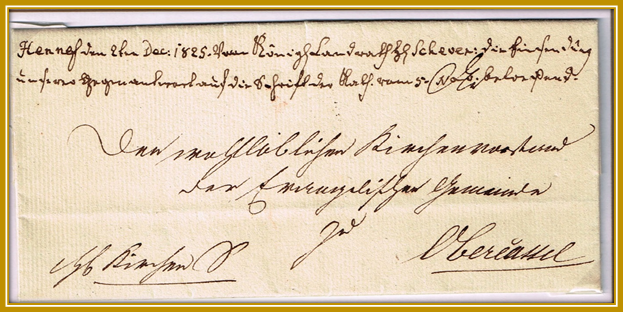 Hennef den 2ten Dec: 1825. Vom Königl. Landrath H. Scheven: die Einsendung
unserer Gegenantwort auf die Schrift der Kath. vom 5. Nov: betreffend.
Den wohllöblichen Kirchenvorstand
der Evangelischen Gemeinde
zu
Obercassel
Kirchen S